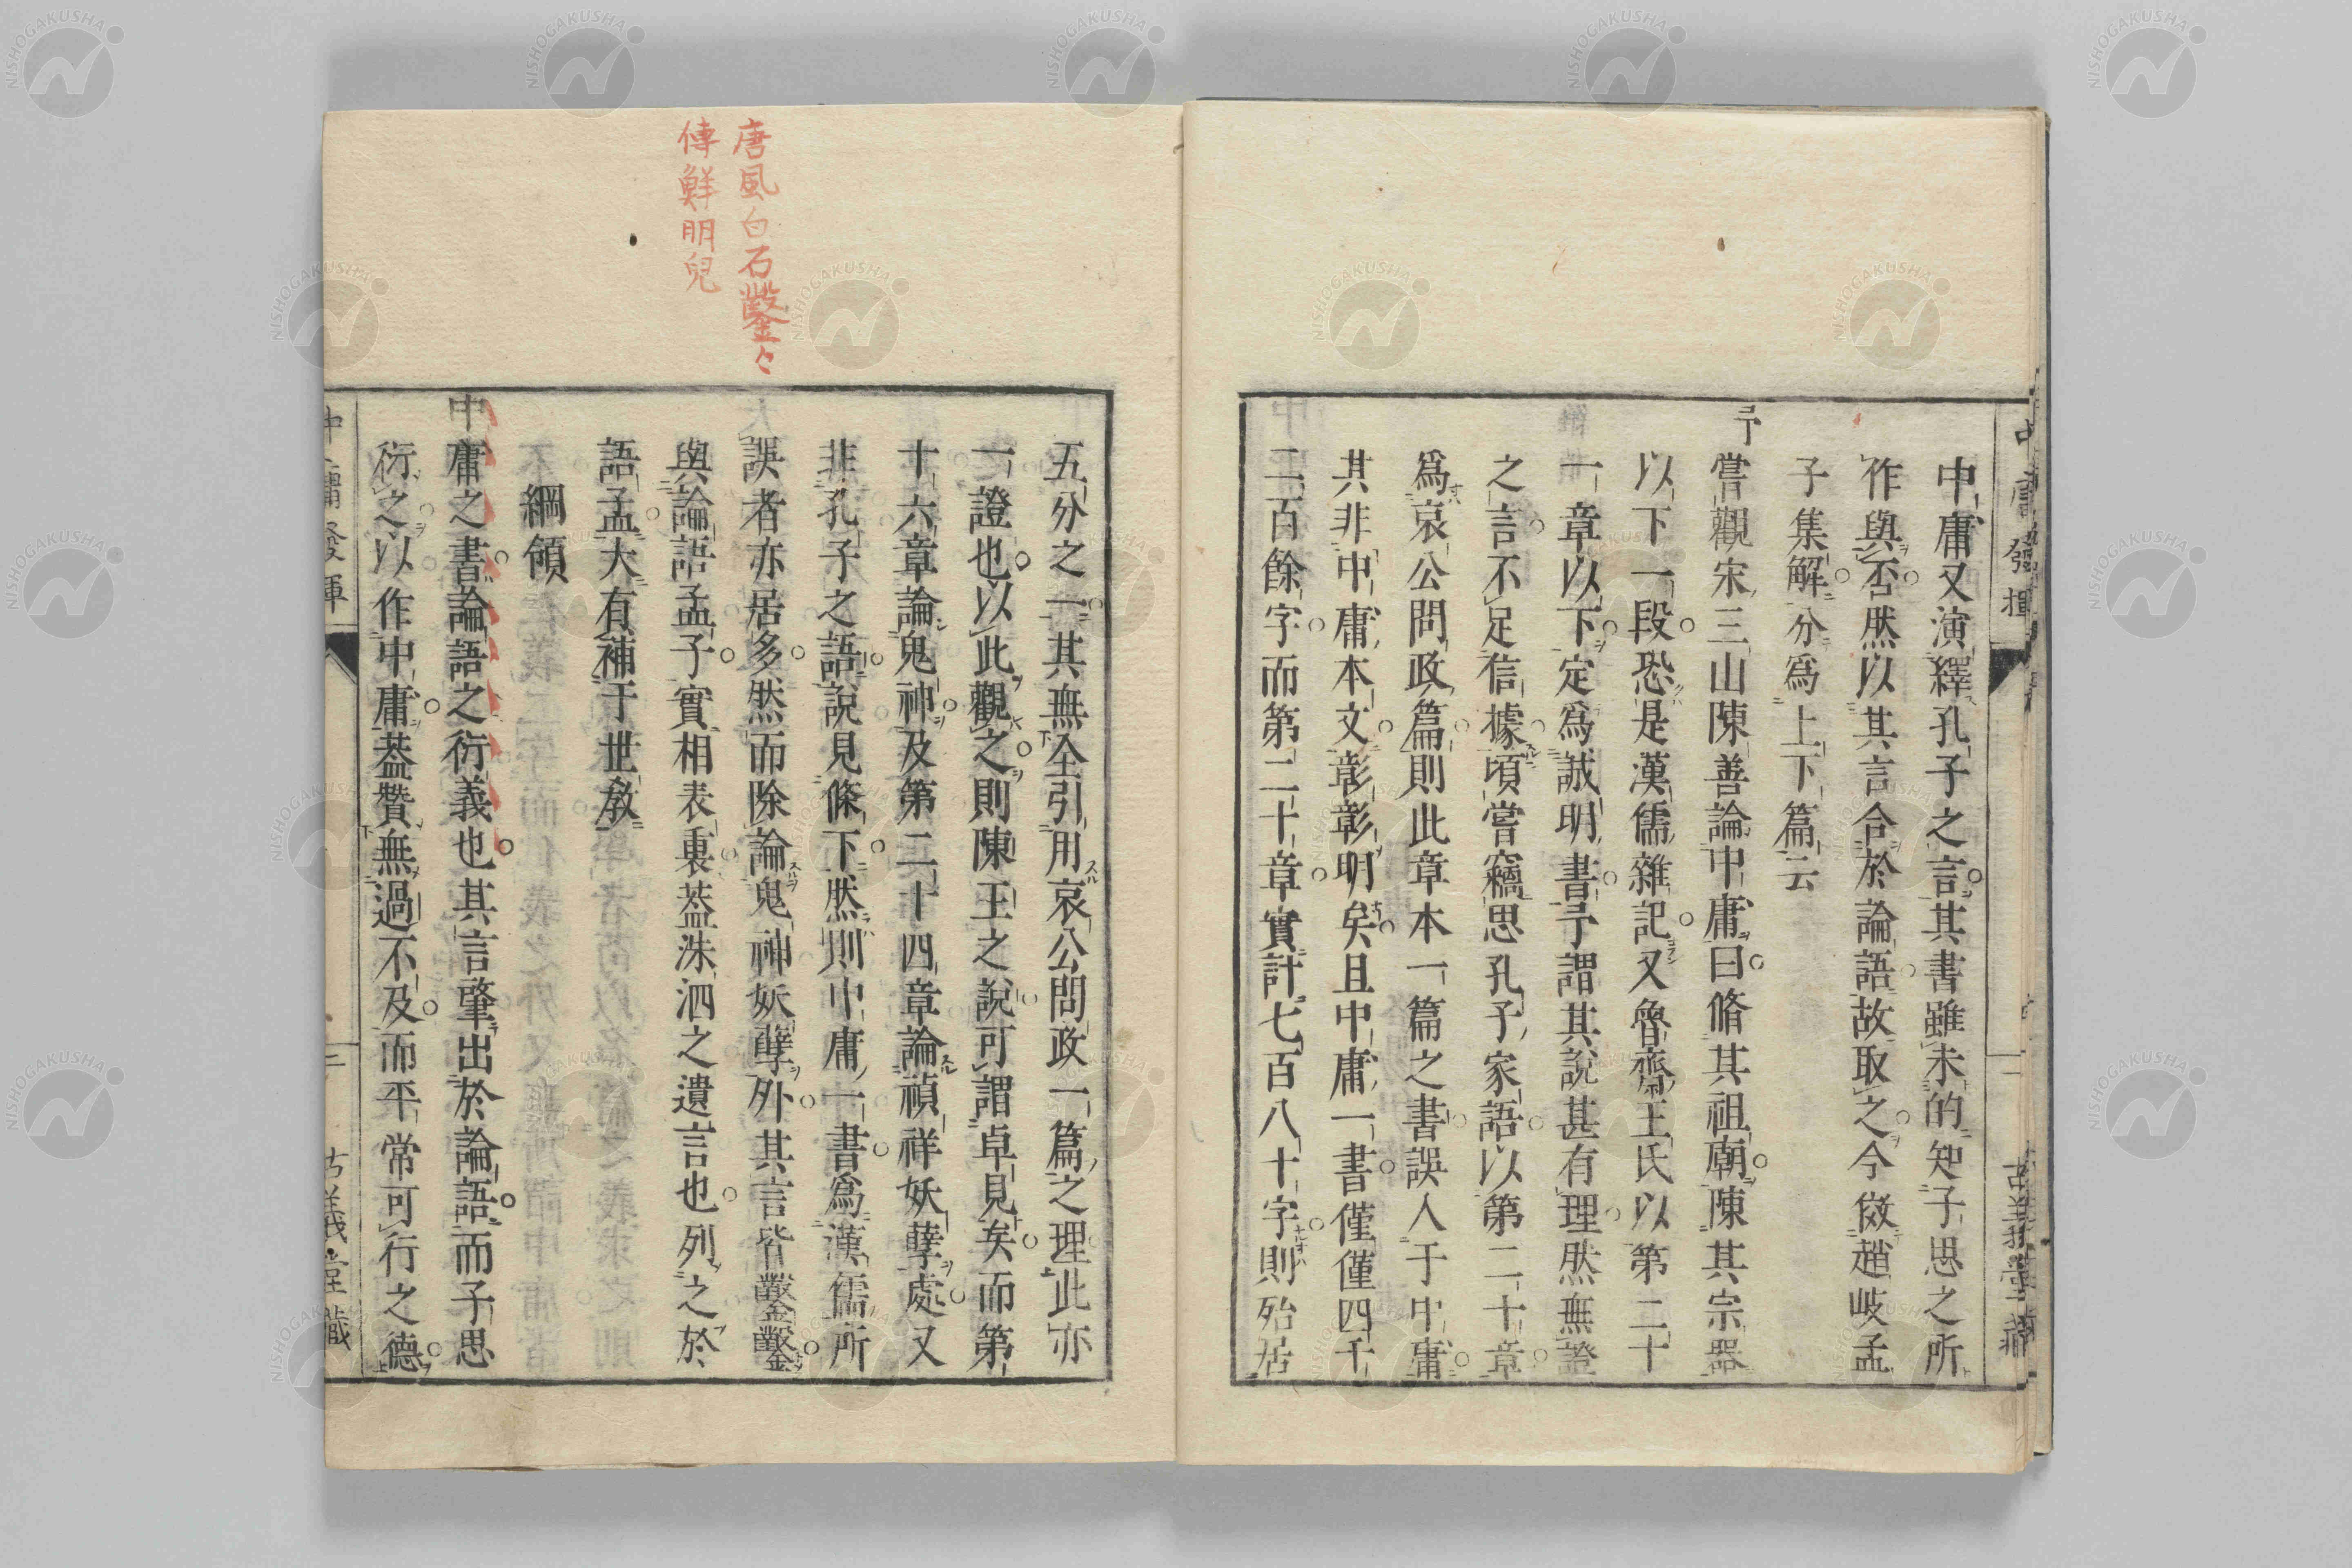 中庸發揮
一
古義堂藏
中庸又演繹孔子之言其書雖未的知子思之所
作與否然以其言合於論語故取之今倣趙岐孟
子集解分爲上下篇云
予
嘗觀宋三山陳善論中庸曰脩其祖廟陳其宗器
以下一段恐是漢儒雜記又魯齋王氏以第二十
一章以下定爲誠明書予謂其說甚有理然無證
之言不足信據頃嘗竊思孔子家語以第二十章
爲哀公問政篇則此章本一篇之書誤入于中庸
其非中庸本文彰彰明矣且中庸一書僅僅四千
二百餘字而第二十章實計七百八十字則殆居
唐風白石鑿々
傳鮮明皃
五分之一其無全引用哀公問政一篇之理此亦
一證也以此觀之則陳王之說可謂卓見矣而第
十六章論鬼神及第二十四章論禎祥妖孽處又
非孔子之語說見條下然則中庸一書爲漢儒所
誤者亦居多然而除論鬼神妖孽外其言皆鑿鑿
與論語孟子實相表裏葢洙泗之遺言也列之於
語孟大有補于世敎
綱領
中庸之書論語之衍義也其言肇出於論語而子思
衍之以作中庸葢贊無過不及而平常可行之德
中庸發揮
二
古義堂藏